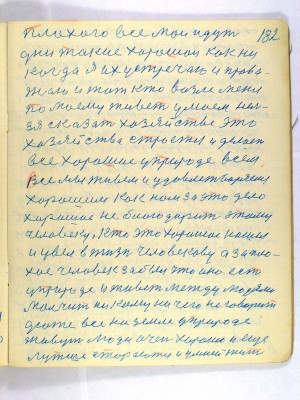 182
плохого все мои идут
дни такие хорошои как ни
когда я их устречаю и прова-
жаю и тот кто возле меня
по моему живет умеем нел-
зя сказат хазяйстве это
хазяйства строется и делает
все хорошие уприроде всем
Все мы живем и удовлетварены
хорошим как нам за это дело
харошае не благодарит этому
человеку. Кто это хорошае нашел
и увел в жизн человекову а запло-
хое человек забыл это ано ест
уприроде и живет между людями
молчит никому ничего не говорит
даже все на земле уприроде
живут люди очен хорошо и еще
лутше стараются и умней жит